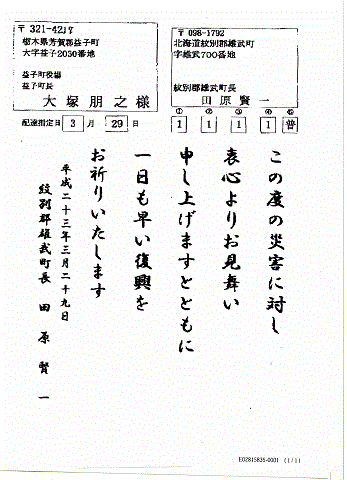 〒 321-4217
栃木県芳賀郡益子町
大字益子2030番地
益子町役場
益子町長
大塚朋之様
配達指定日 3 月 29 日
〒 098-1792
北海道紋別郡雄武町
字雄武700番地
紋別郡雄武町長
田原賢一
① ② ③ ④ ⑤
1 1 1 1 普
この度の災害に対し
衷心よりお見舞い
申し上げますとともに
一日も早い復興を
お祈りいたします
平成二十三年三月二十九日
紋別郡雄武町長 田原賢一
E02815835-0001 (1/1)